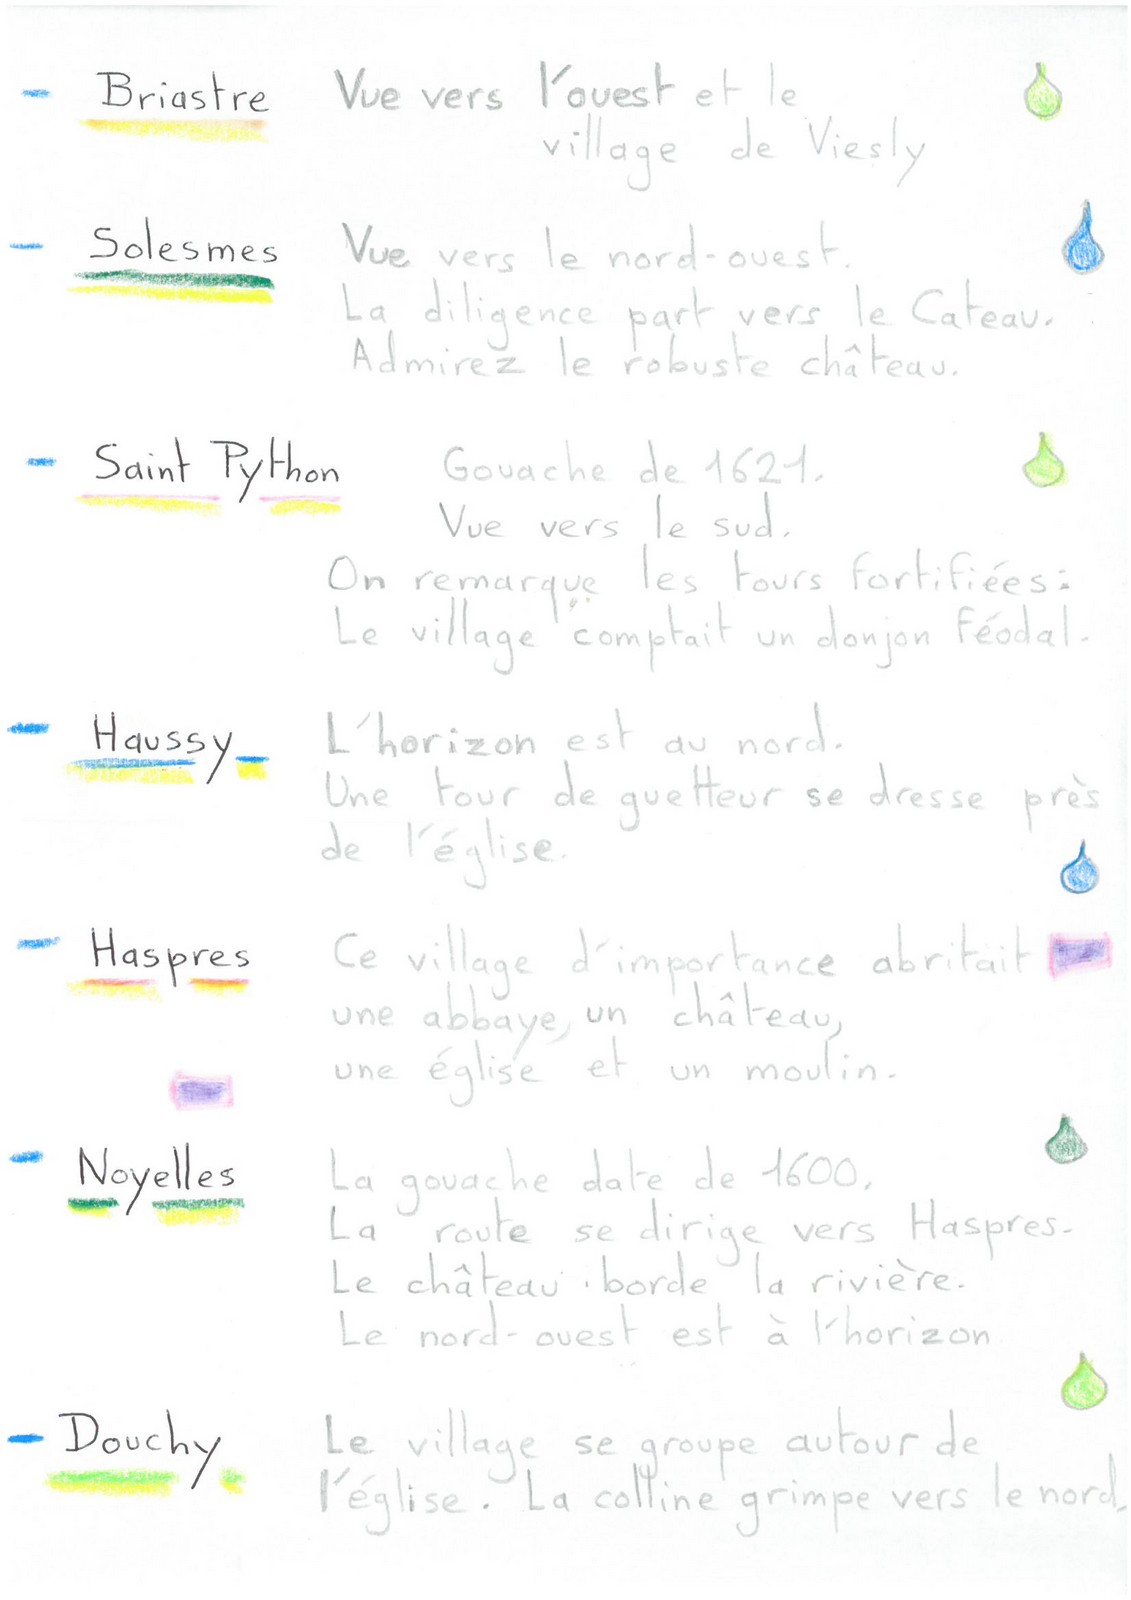 - Briastre Vue vers l'ouest et le
village de Viesly
- Solesmes Vue vers le nord-ouest.
La diligence part vers le Cateau.
Admirez le robuste château.
- Saint Python Gouache de 1621.
Vue vers le sud.
On remarque les tours fortifiées :
Le village comptait un donjon féodal.
- Haussy L'horizon est au nord.
Une tour de guetteur se dresse près
de l'église.
- Haspres Ce village d'importance abritait
une abbaye, un château,
une église et un moulin.
- Noyelles La gouache date de 1600.
La route se dirige vers Haspres.
Le château borde la rivière.
Le nord-ouest est à l'horizon
- Douchy Le village se groupe autour de
l'église. La colline grimpe vers le nord.